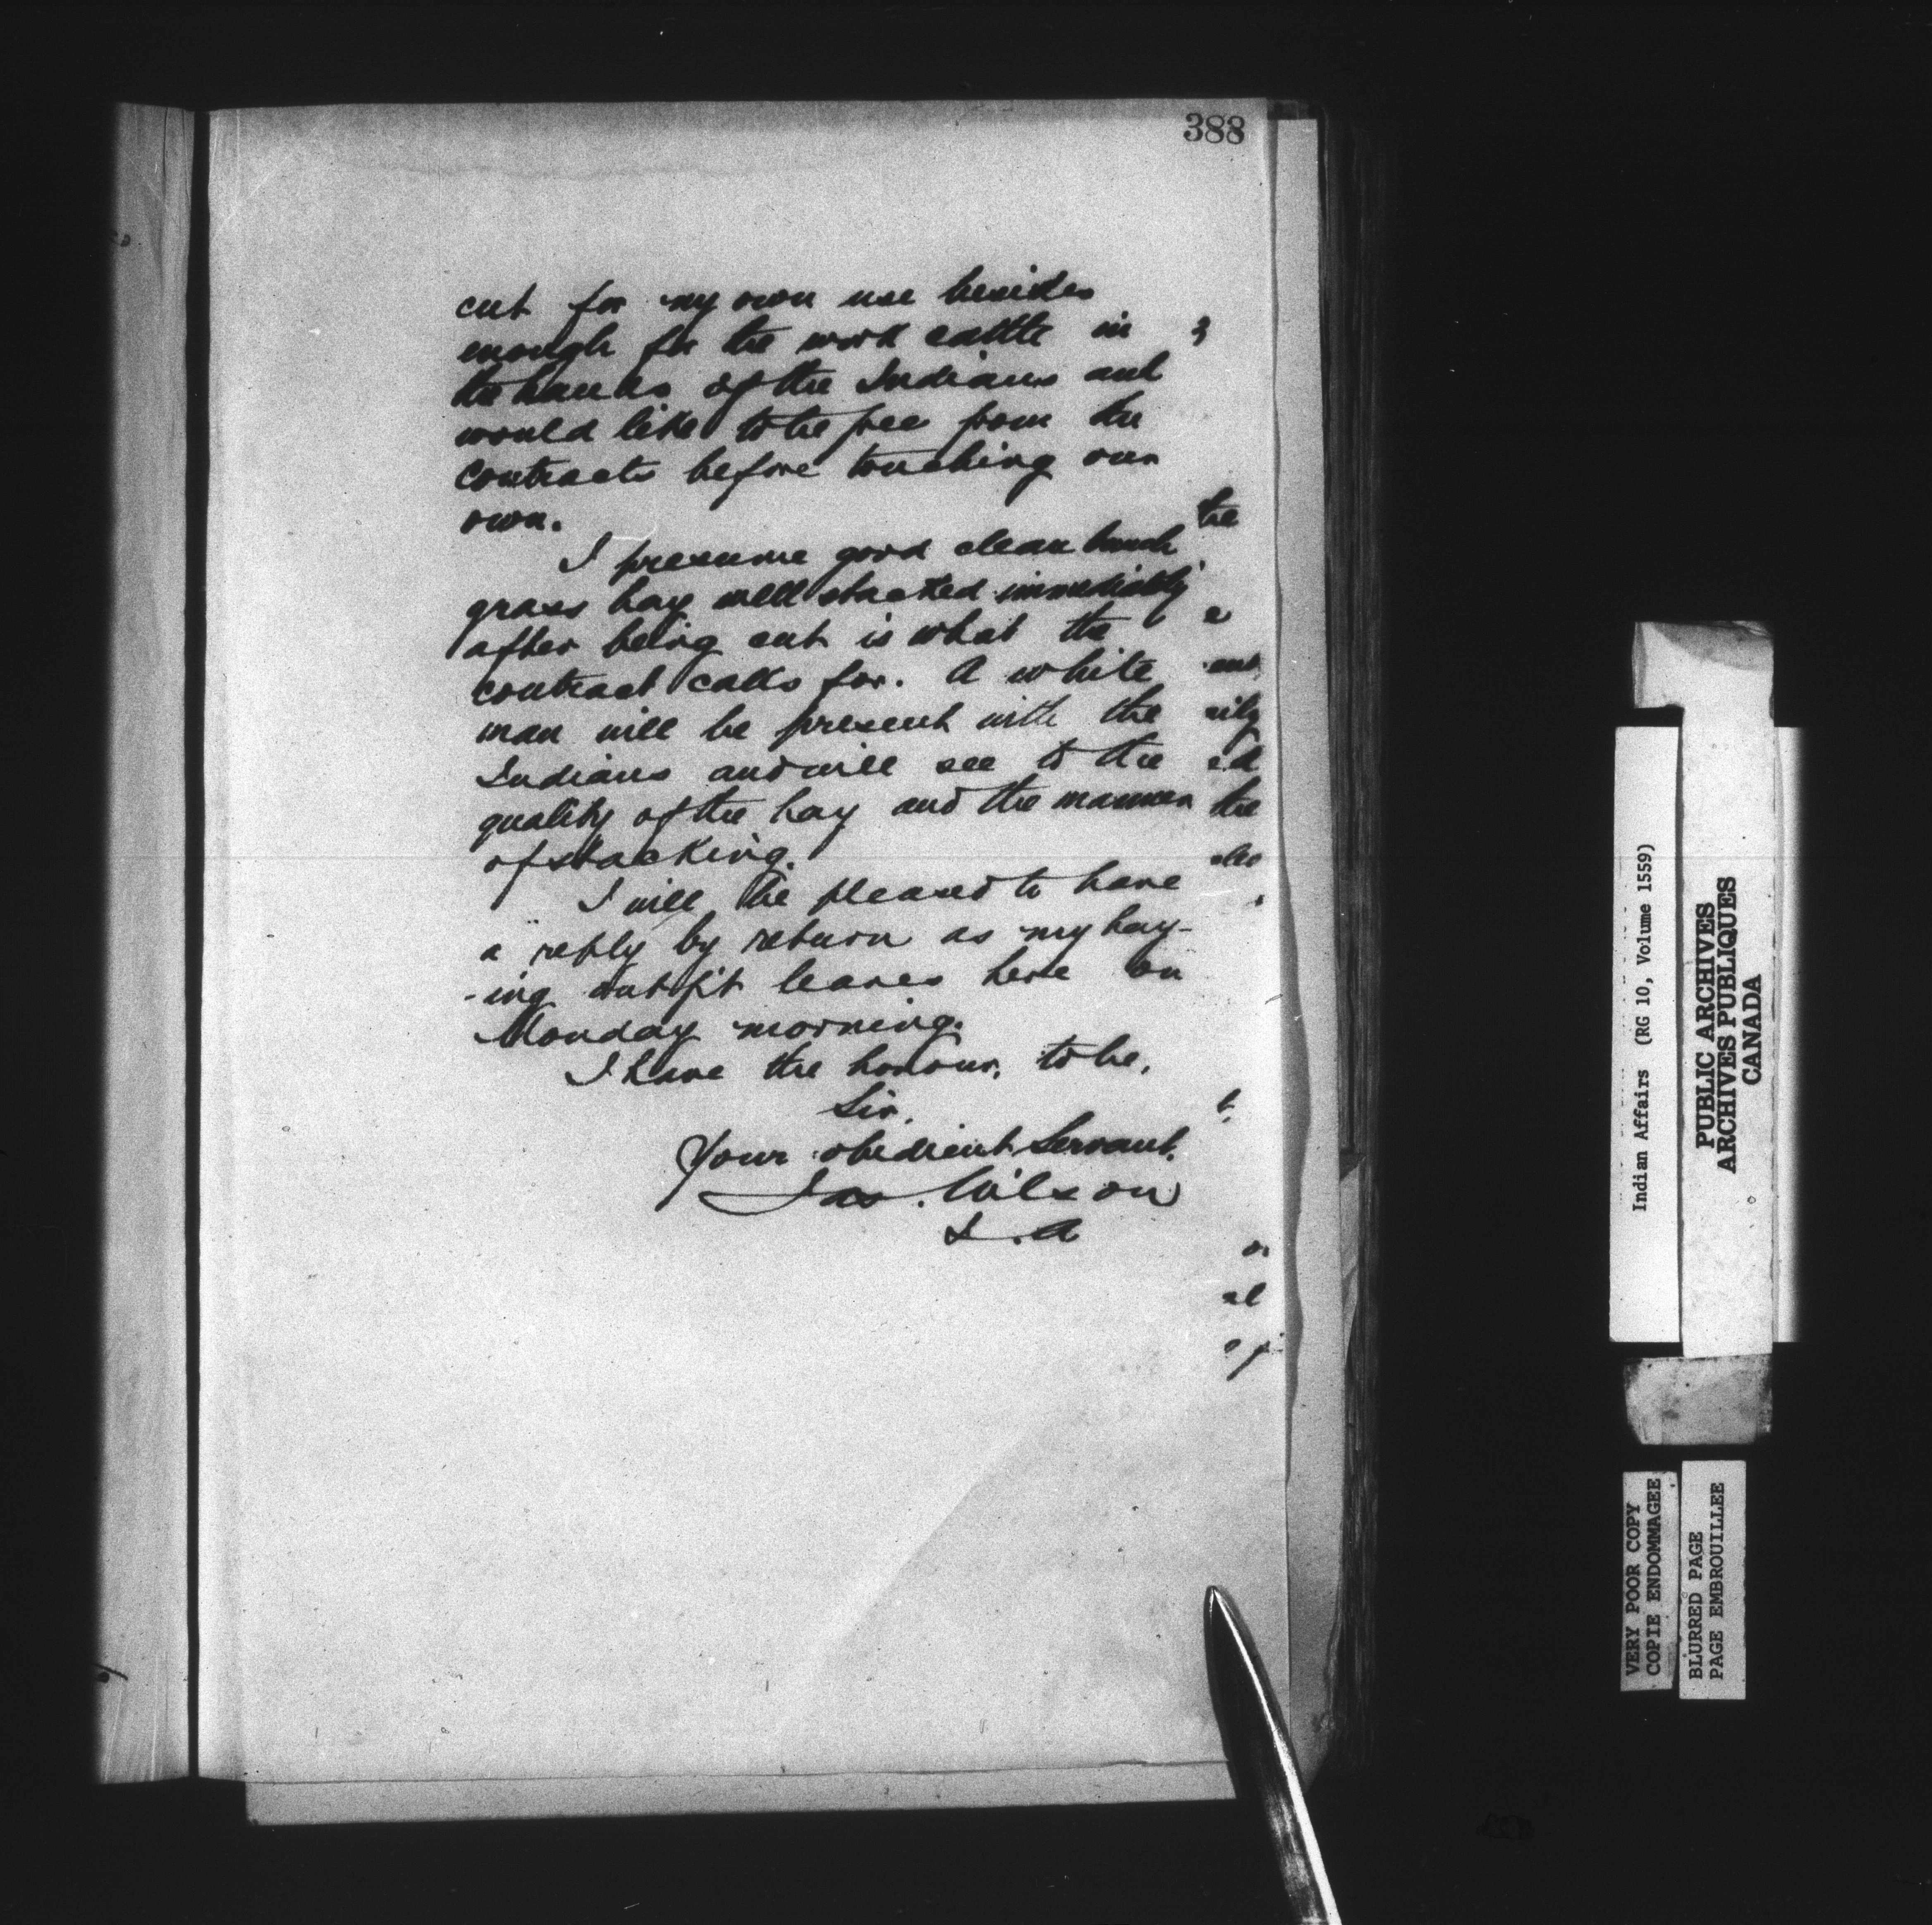 388
cut for my own use besides
enough for the work cattle in
the hands of the Indians and
would like to be free from the
contracts before touching our
own.
I presume good clean bunch
grass hay well stacked immediately
after being cut is what the
contract calls for. A white
man will be present with the
Indians and will see to the
quality of the hay and the manner
of stacking.
I will be pleased to have
a reply by return as my hay-
-ing outfit leaves here on
Monday morning.
I have the honour, to be,
Sir,
Your obedient Servant.
Jas. Wilson
I.A
the
the
Indian Affairs (RG 10, Volume 1559)
PUBLIC ARCHIVES
ARCHIVES PUBLIQUES
CANADA
VERY POOR COPY
COPIE ENDOMMAGEE
BLURRED PAGE
PAGE EMBROUILLEE